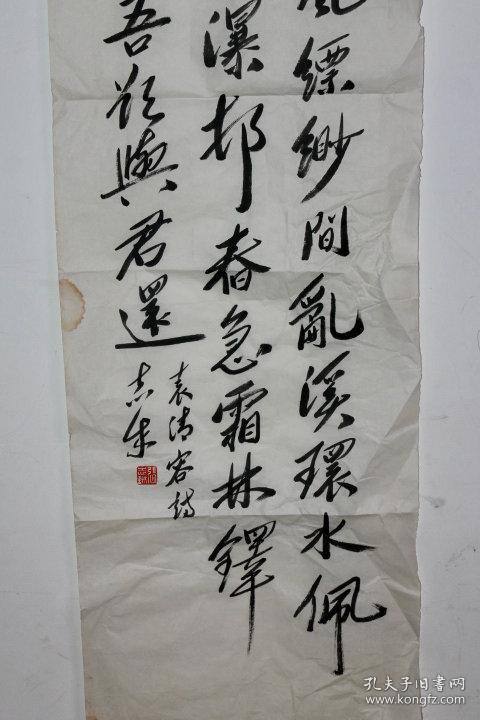 縹緲間亂溪環水佩
瀑邨舂急霜林鐸
吾欲與君還
袁清容詩
孔夫子旧书网
www.kongfz.com